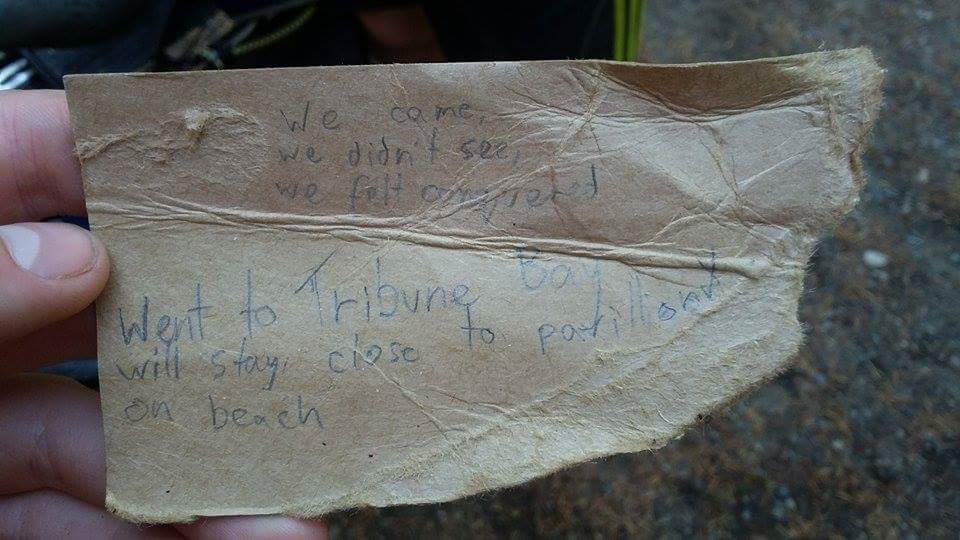 We came,
we didn't see,
we felt conquered
Went to Tribune Bay
will stay close to pavillion
on beach